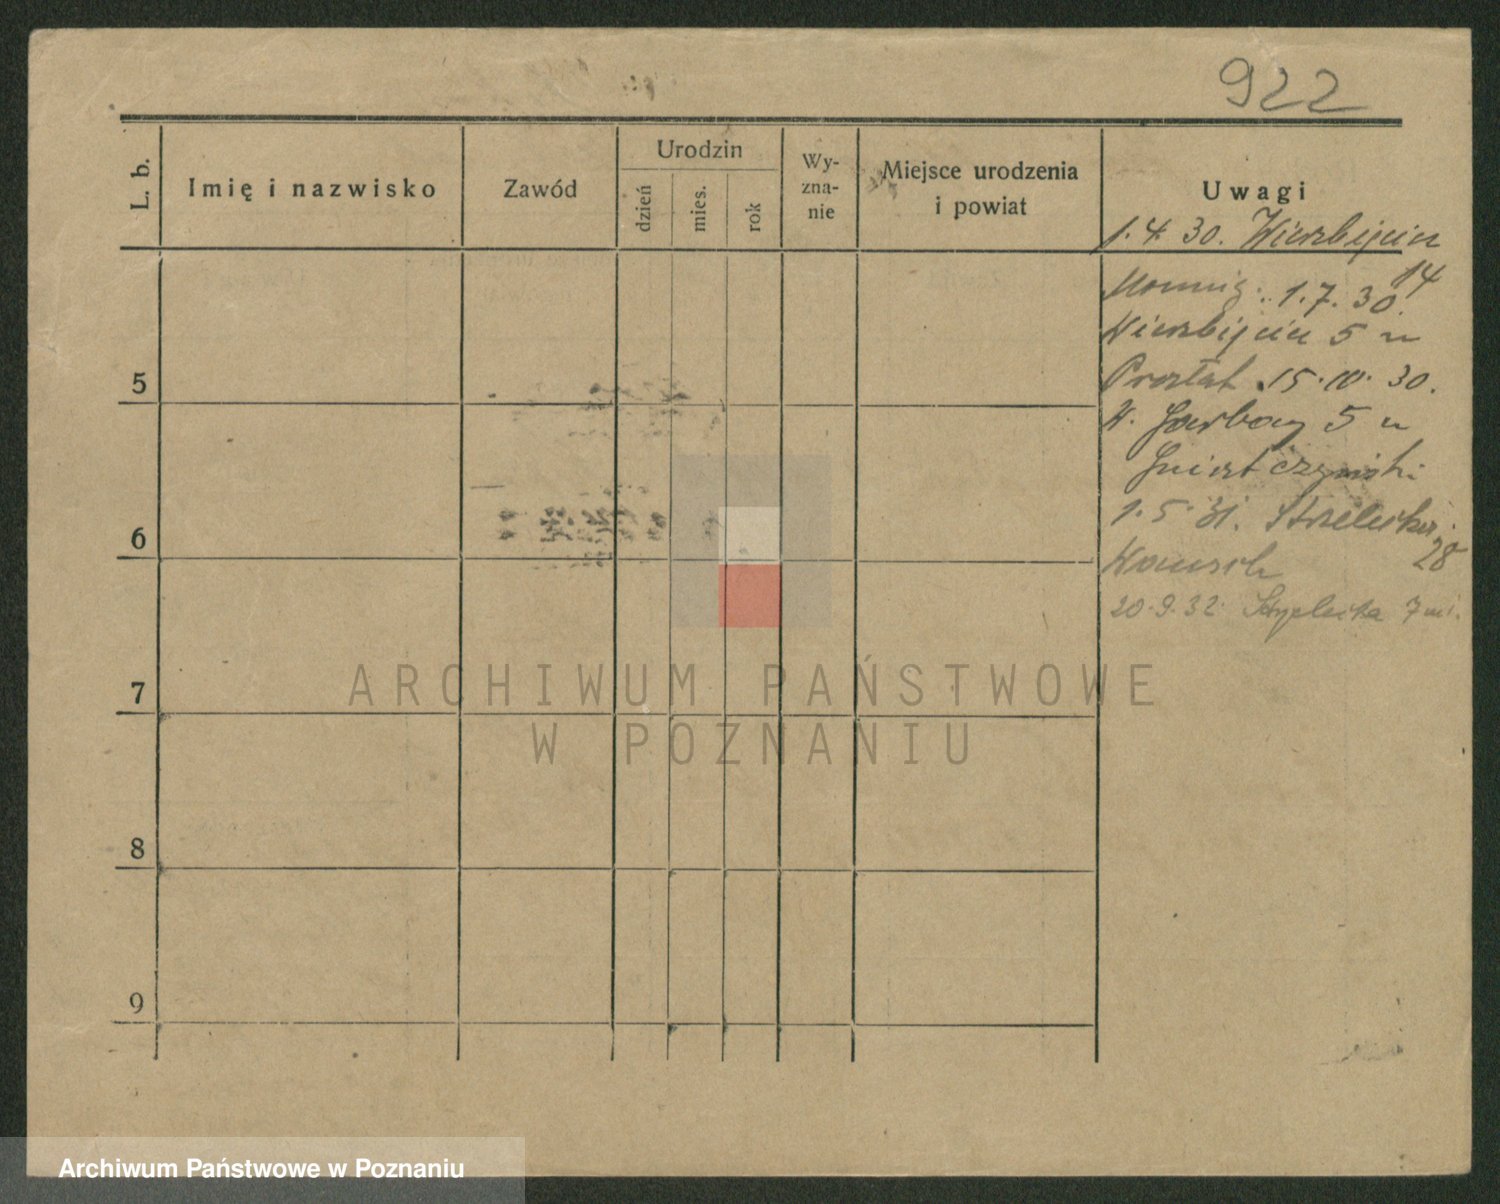 922
L. b.
Imię i nazwisko
Zawód
Urodzin
dzień
mies.
rok
Wy-
zna-
nie
Miejsce urodzenia
i powiat
Uwagi
1.4.30. Wierzbięcin
14
1.7.30.
Wierzbięcin 5 u
15.10.30.
W. Garbary 5 u
1.5.31. Strzelecka
28
20.9.32. Strzelecka 7
5
6
7
8
9
ARCHIWUM PAŃSTWOWE
W POZNANIU
Archiwum Państwowe w Poznaniu